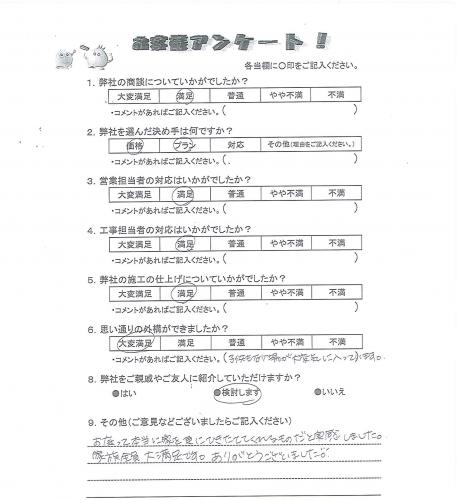 お客様アンケート！
各当欄に〇印をご記入ください。
1. 弊社の商談についていかがでしたか？
大変満足 満足 普通 やや不満 不満
・コメントがあればご記入ください。( )
2. 弊社を選んだ決め手は何ですか？
価格 プラン 対応 その他(理由をご記入ください。)
・コメントがあればご記入ください。( )
3. 営業担当者の対応はいかがでしたか？
大変満足 満足 普通 やや不満 不満
・コメントがあればご記入ください。( )
4. 工事担当者の対応はいかがでしたか？
大変満足 満足 普通 やや不満 不満
・コメントがあればご記入ください。( )
5. 弊社の施工の仕上げについていかがでしたか？
大変満足 満足 普通 やや不満 不満
・コメントがあればご記入ください。( )
6. 思い通りの外構ができましたか？
大変満足 満足 普通 やや不満 不満
・コメントがあればご記入ください。( 入って)います。
8. 弊社をご親戚やご友人に紹介していただけますか？
●はい ●検討します ●いいえ
9. その他(ご意見などございましたらご記入ください)
って本当に家を更にひきたててくれるものだと実感しました。
家族全員大満足です。ありがとうございました。